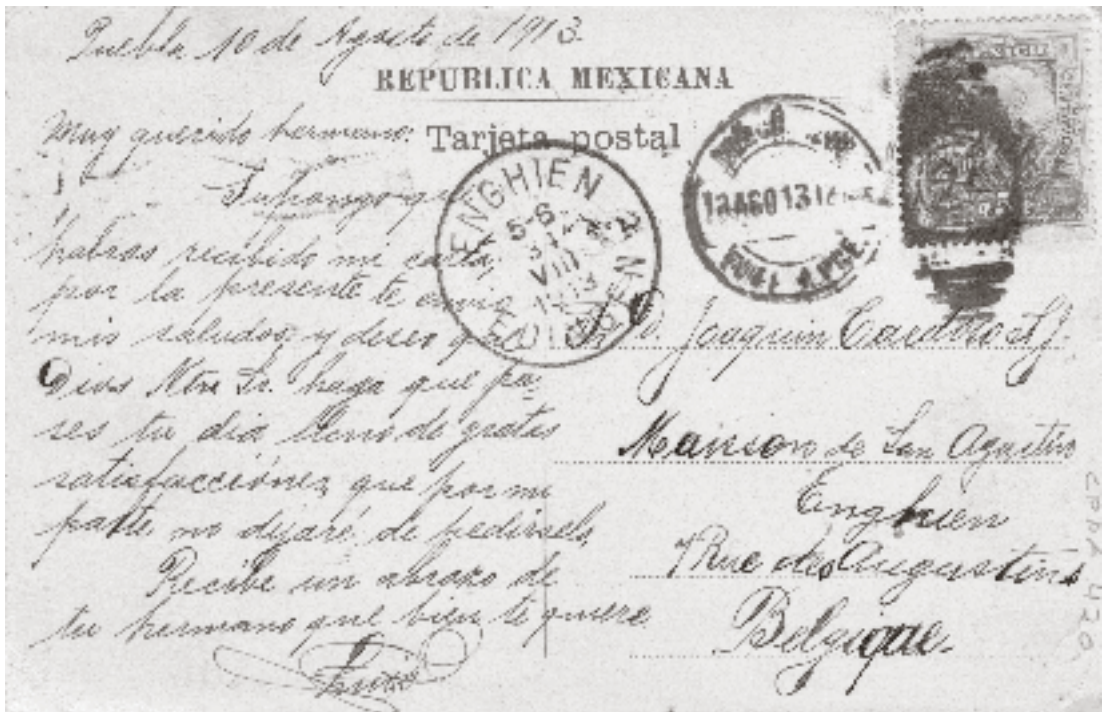 Puebla 10 de Agosto de 1913.
REPUBLICA MEXICANA
Tarjeta postal
Muy querido hermano:
Supongo que
habras recibido mi carta,
por la presente te envio
mis saludos y deseo que
Dios Ntro Sr. haga que pa-
ses tu dia lleno de gratas
satisfacciones, que por mi
parte no dejaré de pedirselo,
Recibe un abrazo de
tu hermano que bien te quiere
ENGHIEN
5-6
VIII
13
EDINGEN
MEXICO
R. P. Joaquin Cardoso S.J.
Maison de San Agustin
Enghien
7 Rue des Augustins
Belgique.